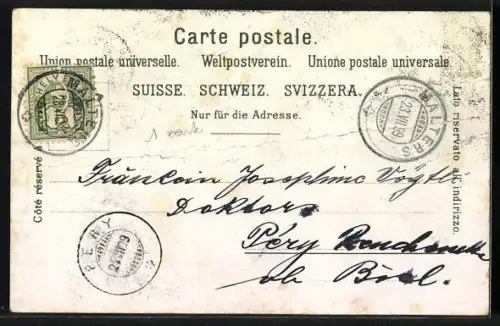 Carte postale.
Union postale universelle. Weltpostverein. Unione postale universale.
SUISSE. SCHWEIZ. SVIZZERA.
Nur für die Adresse.
Côté réservé à
Lato riservato all'indirizzo.
MALTERS
23.VII.99
Fräulein Josephine Vögtli
Doktors
Péry Reuchenette
ob Biel.
PERY